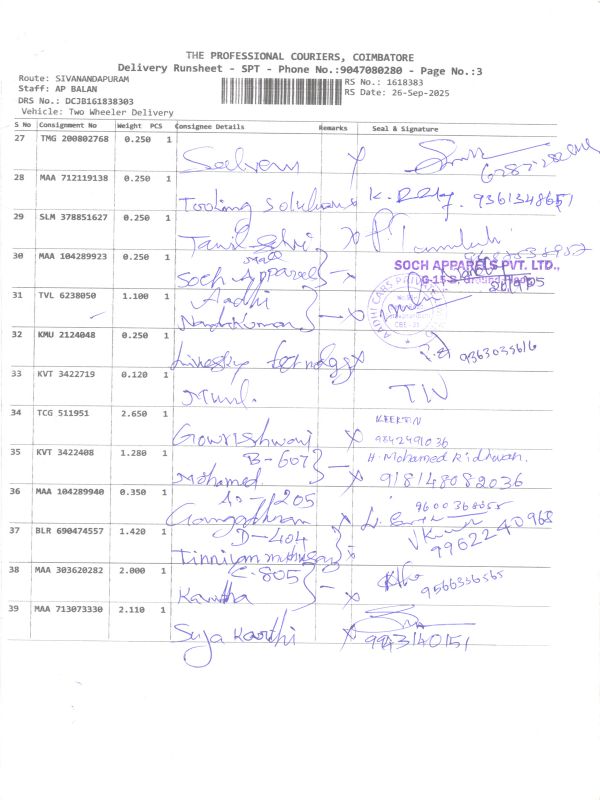 THE PROFESSIONAL COURIERS, COIMBATORE
Delivery Runsheet - SPT - Phone No.:9047080280 - Page No.:3
Route: SIVANANDAPURAM
Staff: AP BALAN
DRS No.: DCJB161838303
Vehicle: Two Wheeler Delivery
RS No.: 1618383
RS Date: 26-Sep-2025
S No Consignment No Weight PCS Consignee Details Remarks Seal & Signature
27 TMG 200802768 0.250 1 Selvam X
28 MAA 712119138 0.250 1
Tooling Solutions K. 9361348651
29 SLM 378851627 0.250 1
Tamil Selvi X
30 MAA 104289923 0.250 1
Soch Apparel X SOCH APPARELS PVT. LTD.,
31 TVL 6238050 1.100 1 Aadhi
Nandakumar X
32 KMU 2124048 0.250 1
9363033616
33 KVT 3422719 0.120 1
34 TCG 511951 2.650 1 KEERTIN
Gowrishwari X 9842491036
35 KVT 3422408 1.280 1 B-607 H. Mohamed Ridhwan.
Mohamed X 918148082036
36 MAA 104289940 0.350 1 A-1205 9600368055
Gangatharan X
37 BLR 690474557 1.420 1 D-404 9962240968
38 MAA 303620282 2.000 1 C-805
Kavitha X 9566336565
39 MAA 713073330 2.110 1
Suja Karthi X 9943140151